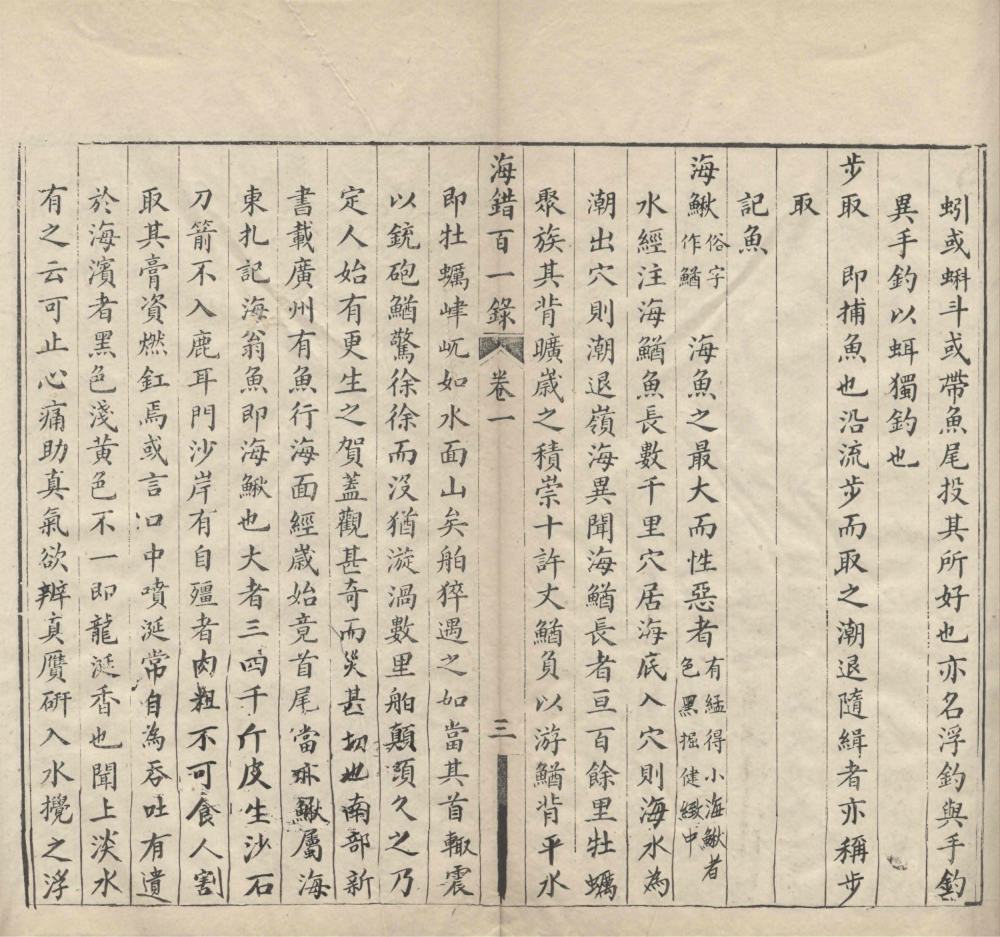 蚓或蝌斗或帶魚尾投其所好也亦名浮釣與手釣
異手釣以蛑獨釣也
步取　即捕魚也沿流步而取之潮退隨緝者亦稱步
取
記魚
海鰍俗字作鰌　海魚之最大而性惡者有綎得小海鰍者色黑掘健緻中
水經注海鰌魚長數千里穴居海底入穴則海水為
潮出穴則潮退嶺海異聞海鰌長者亘百餘里牡蠣
聚族其背曠歲之積崇十許丈鰌負以游鰌背平水
海錯百一錄　卷一　三
即牡蠣峍屼如水面山矣舶猝遇之如當其首輙震
以銃砲鰌驚徐徐而没猶漩渦數里舶顛頭久之乃
定人始有更生之賀蓋觀甚奇而災甚切也南部新
書載廣州有魚行海面經歲始竟首尾當亦鰍屬海
東扎記海翁魚即海鰍也大者三四千斤皮生沙石
刀箭不入鹿耳門沙岸有自殭者肉粗不可食人割
取其膏資燃釭焉或言口中噴涎常自為吞吐有遺
於海濱者黑色淺黄色不一即龍涎香也聞上淡水
有之云可止心痛助真氣欲辨真贋硏入水攪之浮